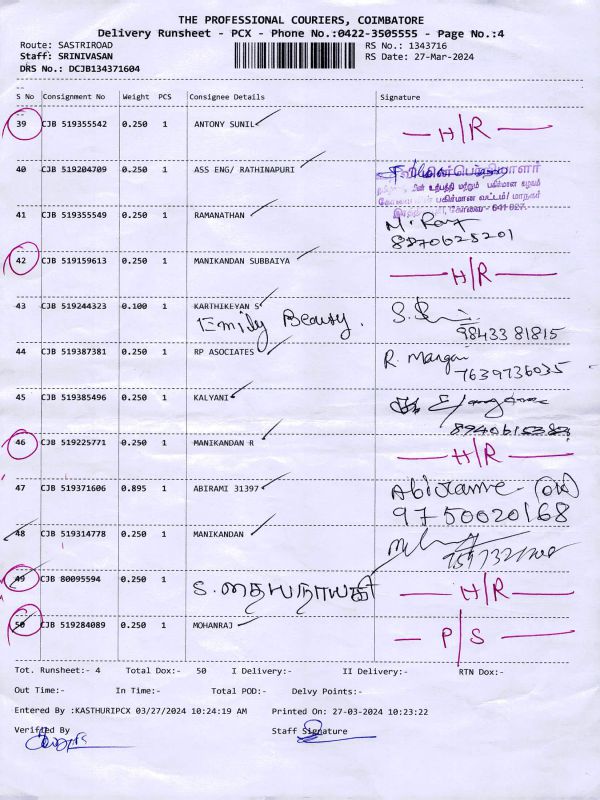 THE PROFESSIONAL COURIERS, COIMBATORE
Delivery Runsheet - PCX - Phone No.:0422-3505555 - Page No.:4
Route: SASTRIROAD RS No.: 1343716
Staff: SRINIVASAN RS Date: 27-Mar-2024
DRS No.: DCJB134371604
S No Consignment No Weight PCS Consignee Details Signature
39 CJB 519355542 0.250 1 ANTONY SUNIL H/R
40 CJB 519204709 0.250 1 ASS ENG/ RATHINAPURI
மின் உற்பத்தி மற்றும் பகிர்மான கழகம்
பகிர்மான வட்டம்/ மாநகர்
கோவை - 641 027.
41 CJB 519355549 0.250 1 RAMANATHAN
8870625201
42 CJB 519159613 0.250 1 MANIKANDAN SUBBAIYA H/R
43 CJB 519244323 0.100 1 KARTHIKEYAN S
Emily Beauty. 98433 81815
44 CJB 519387381 0.250 1 RP ASOCIATES R. Mangai
7639736035
45 CJB 519385496 0.250 1 KALYANI
46 CJB 519225771 0.250 1 MANIKANDAN R H/R
47 CJB 519371606 0.895 1 ABIRAMI 31397
9750020168
48 CJB 519314778 0.250 1 MANIKANDAN
49 CJB 80095594 0.250 1 S. தையநாயகி H/R
50 CJB 519284089 0.250 1 MOHANRAJ P/S
Tot. Runsheet:- 4 Total Dox:- 50 I Delivery:- II Delivery:- RTN Dox:-
Out Time:- In Time:- Total POD:- Delvy Points:-
Entered By :KASTHURIPCX 03/27/2024 10:24:19 AM Printed On: 27-03-2024 10:23:22
Verified By Staff Signature